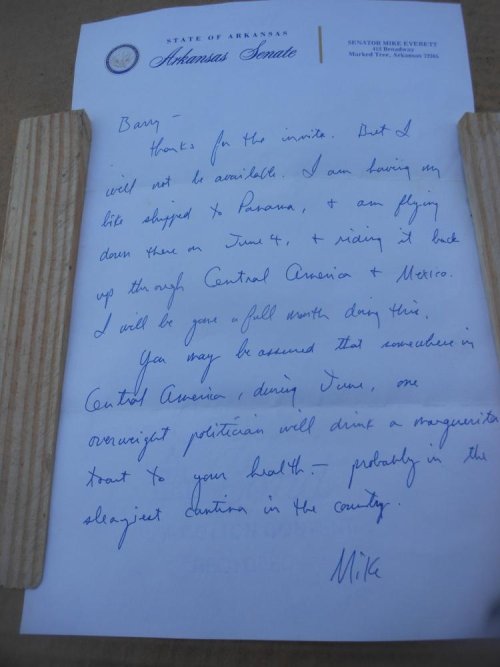 STATE OF ARKANSAS
Arkansas Senate
SENATOR MIKE EVERETT
412 Broadway
Marked Tree, Arkansas 72365
Barry -
thanks for the invite. But I
will not be available. I am having my
bike shipped to Panama, & am flying
down there on June 4, & riding it back
up through Central America & Mexico.
I will be gone a full month doing this.
You may be assured that somewhere in
Central America, during June, one
overweight politician will drink a marguerita
toast to your health - probably in the
sleaziest cantina in the country.
Mike